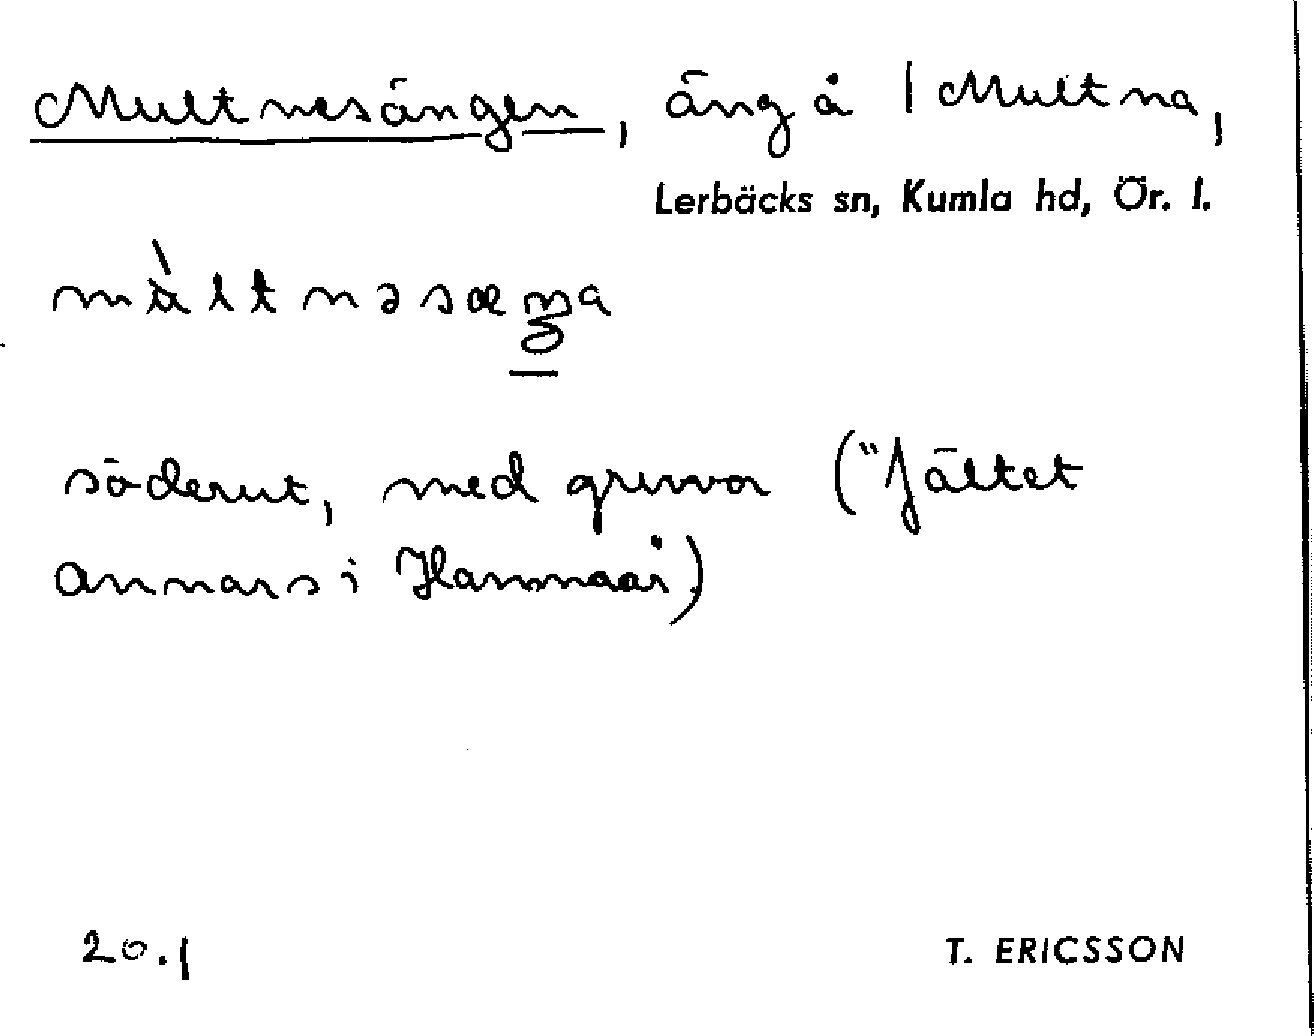 Multnesängen, äng å 1 Multna,
Lerbäcks sn, Kumla hd, Ör. l.
mùltnəsæŋa
söderut, med gruvor ("fältet
annars i Hammaår)
20.1
T. ERICSSON